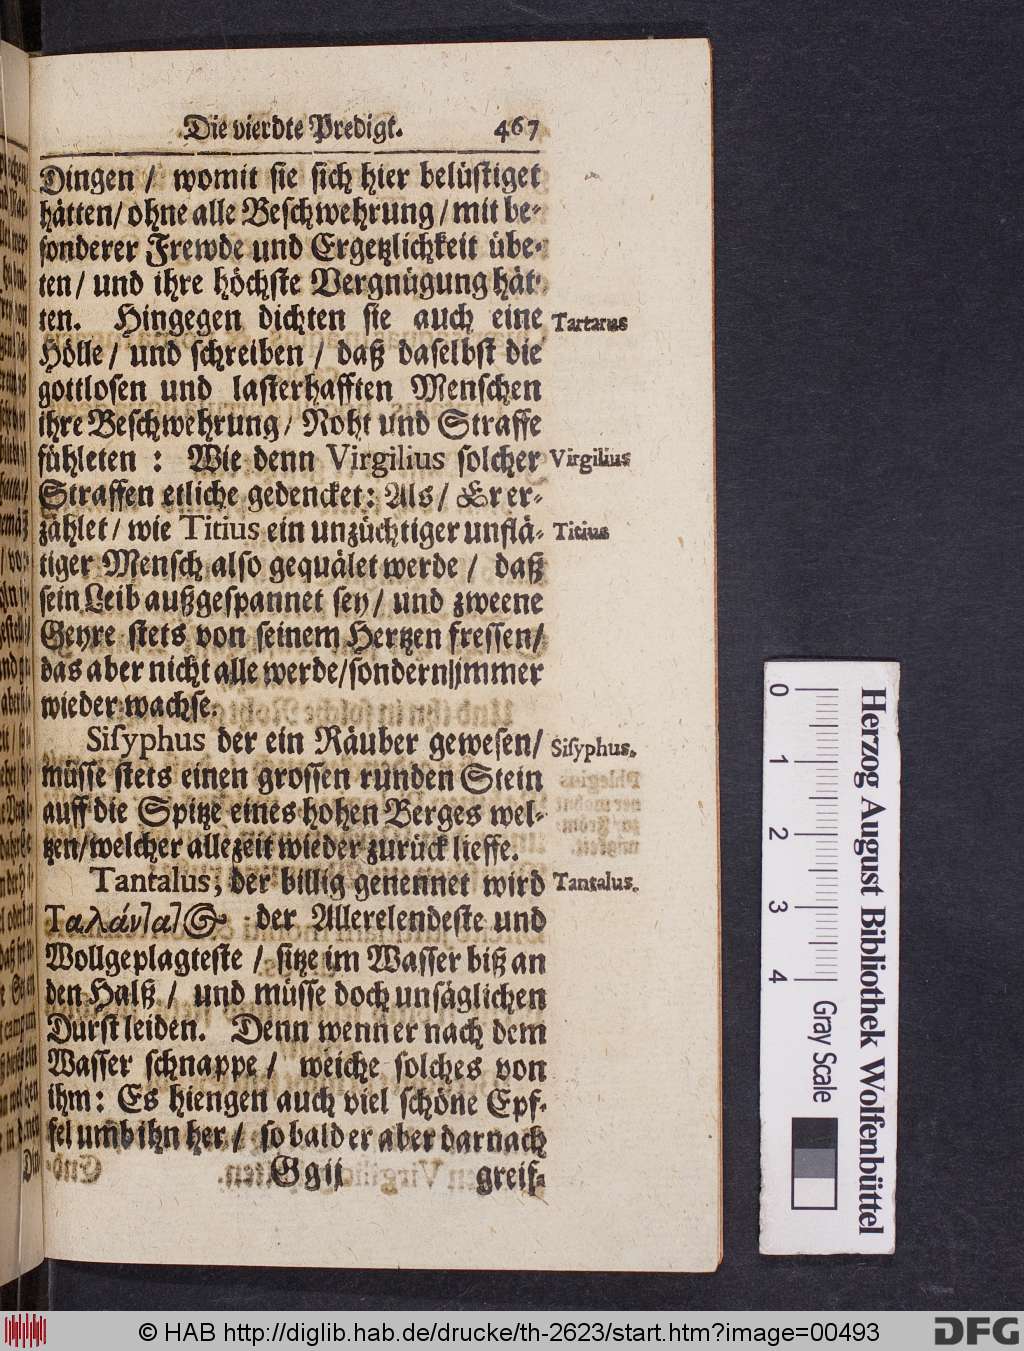 Die vierdte Predigt. 467
Dingen / womit sie sich hier belüstiget
hätten/ ohne alle Beschwehrung / mit be-
sonderer Frewde und Ergetzlichkeit übe-
ten / und ihre höchste Vergnügung hät-
ten. Hingegen dichten sie auch eine
Tartarus
Hölle / und schreiben / daß daselbst die
gottlosen und lasterhafften Menschen
ihre Beschwehrung / Noht und Straffe
fühleten : Wie denn Virgilius solcher
Virgilius
Straffen etliche gedencket: Als / Er er-
zählet / wie Titius ein unzüchtiger unflä-
Titius
tiger Mensch also gequälet werde / daß
sein Leib außgespannet sey / und zweene
Geyre stets von seinem Hertzen fressen/
das aber nicht alle werde/sondern immer
wieder wachse.
Sisyphus der ein Räuber gewesen/
Sisyphus.
müsse stets einen grossen runden Stein
auff die Spitze eines hohen Berges wel-
tzen/welcher allezeit wieder zurück lieffe.
Tantalus, der billig genennet wird
Tantalus.
Ταλάντατος der Allerelendeste und
Wollgeplagteste / sitze im Wasser biß an
den Halß / und müsse doch unsäglichen
Durst leiden. Denn wenn er nach dem
Wasser schnappe / weiche solches von
ihm: Es hiengen auch viel schöne Epf-
fel umb ihn her / so bald er aber darnach
Gg ij greif-
0 1 2 3 4
Gray Scale
Herzog August Bibliothek Wolfenbüttel
© HAB http://diglib.hab.de/drucke/th-2623/start.htm?image=00493
DFG